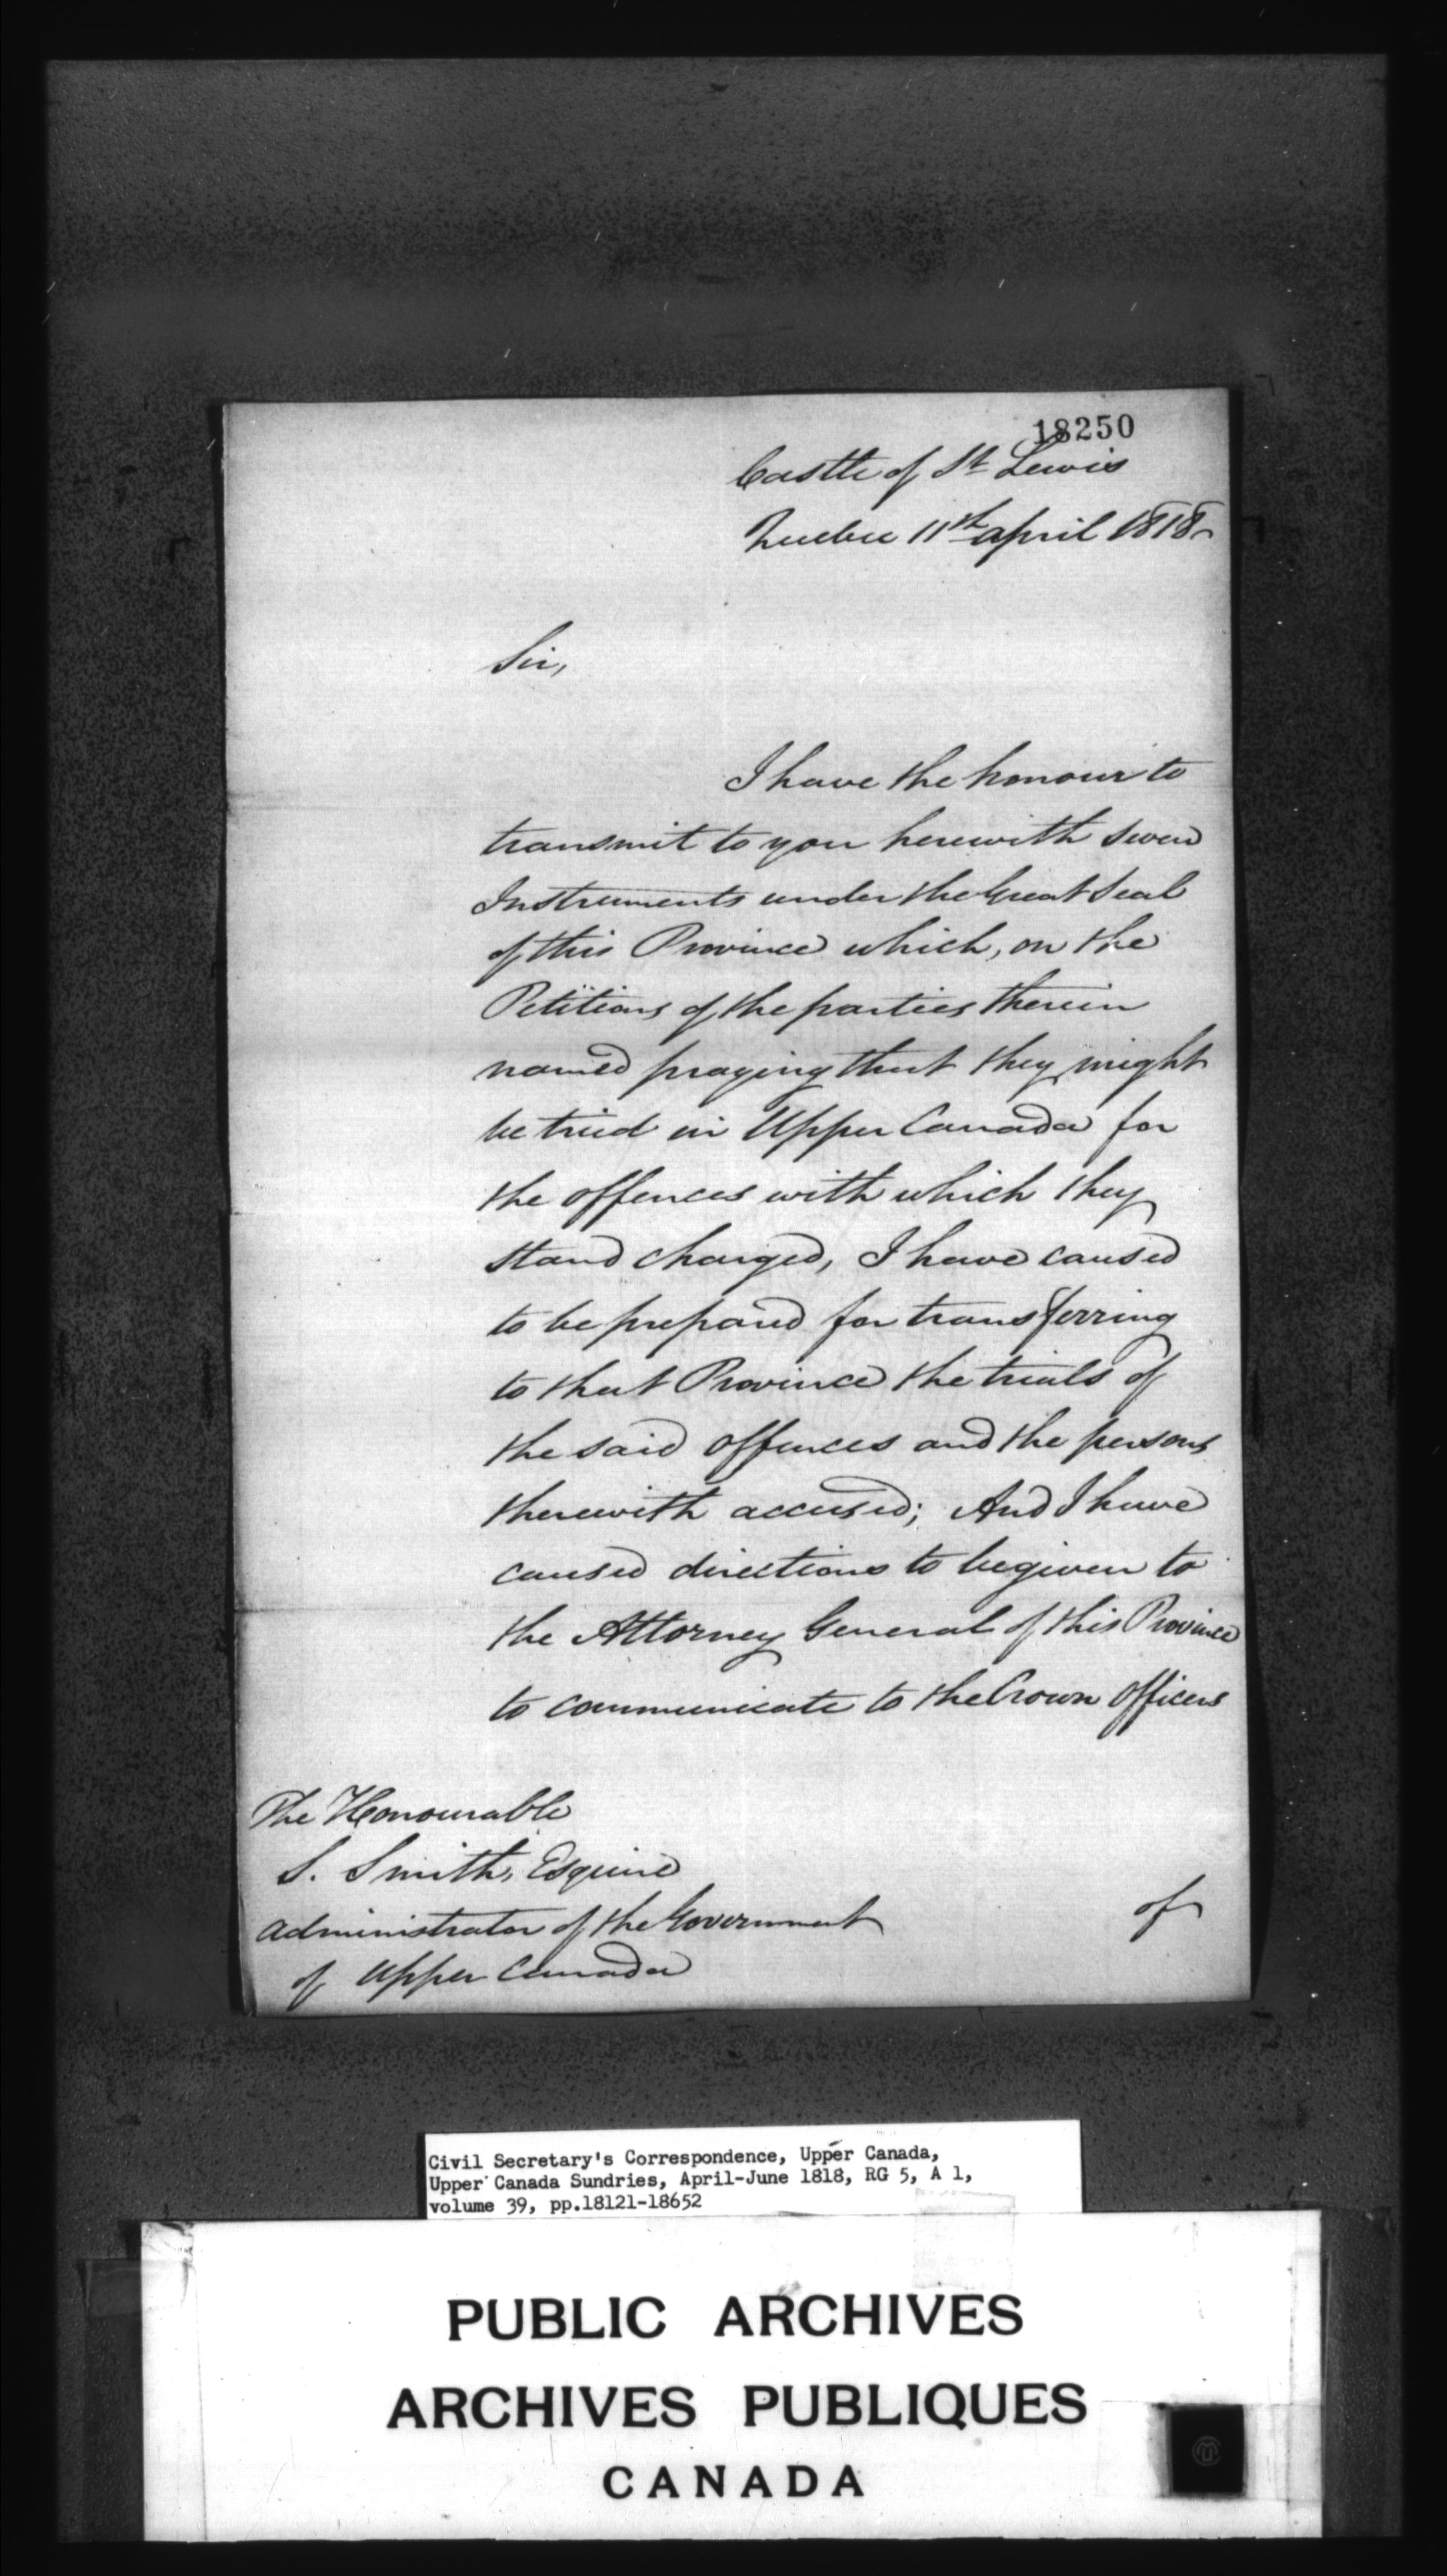 18250
Castle of St Lewis
Quebec 11th april 1818
Sir,
I have the honour to
transmit to you herewith seven
Instruments under the Great Seal
of this Province which, on the
Petitions of the parties therein
named praying that they might
be tried in Upper Canada for
the offences with which they
stand charged, I have caused
to be prepared for transferring
to that Province the trials of
the said offences and the persons
therewith accused; And I have
caused directions to be given to
the Attorney General of this Province
to communicate to the Crown Officers
The Honourable
S. Smith, Esquire
administrator of the Government
of Upper Canada
of
Civil Secretary's Correspondence, Upper Canada,
Upper Canada Sundries, April-June 1818, RG 5, A 1,
volume 39, pp.18121-18652
PUBLIC ARCHIVES
ARCHIVES PUBLIQUES
CANADA